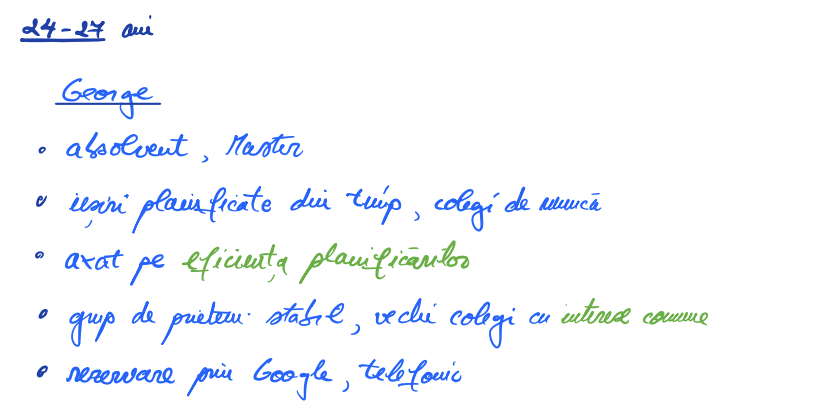 24-27 ani
George
• absolvent, Master
• ieșiri planificate din timp, colegi de muncă
• axat pe eficiența planificărilor
• grup de prieteni stabil, vechi colegi cu interese comune
• rezervare prin Google, telefonic